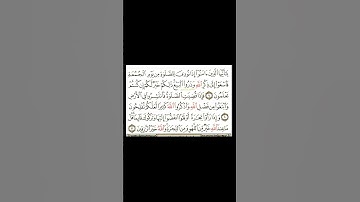 يَٰٓأَيُّهَا ٱلَّذِينَ ءَامَنُوٓاْ إِذَا نُودِيَ لِلصَّلَوٰةِ مِن يَوۡمِ ٱلۡجُمُعَةِ
فَٱسۡعَوۡاْ إِلَىٰ ذِكۡرِ ٱللَّهِ وَذَرُواْ ٱلۡبَيۡعَۚ ذَٰلِكُمۡ خَيۡرٞ لَّكُمۡ إِن كُنتُمۡ
تَعۡلَمُونَ ۝ فَإِذَا قُضِيَتِ ٱلصَّلَوٰةُ فَٱنتَشِرُواْ فِي ٱلۡأَرۡضِ
وَٱبۡتَغُواْ مِن فَضۡلِ ٱللَّهِ وَٱذۡكُرُواْ ٱللَّهَ كَثِيرٗا لَّعَلَّكُمۡ تُفۡلِحُونَ
۝ وَإِذَا رَأَوۡاْ تِجَٰرَةً أَوۡ لَهۡوًا ٱنفَضُّوٓاْ إِلَيۡهَا وَتَرَكُوكَ قَآئِمٗاۚ قُلۡ
مَا عِندَ ٱللَّهِ خَيۡرٞ مِّنَ ٱللَّهۡوِ وَمِنَ ٱلتِّجَٰرَةِۚ وَٱللَّهُ خَيۡرُ ٱلرَّٰزِقِينَ